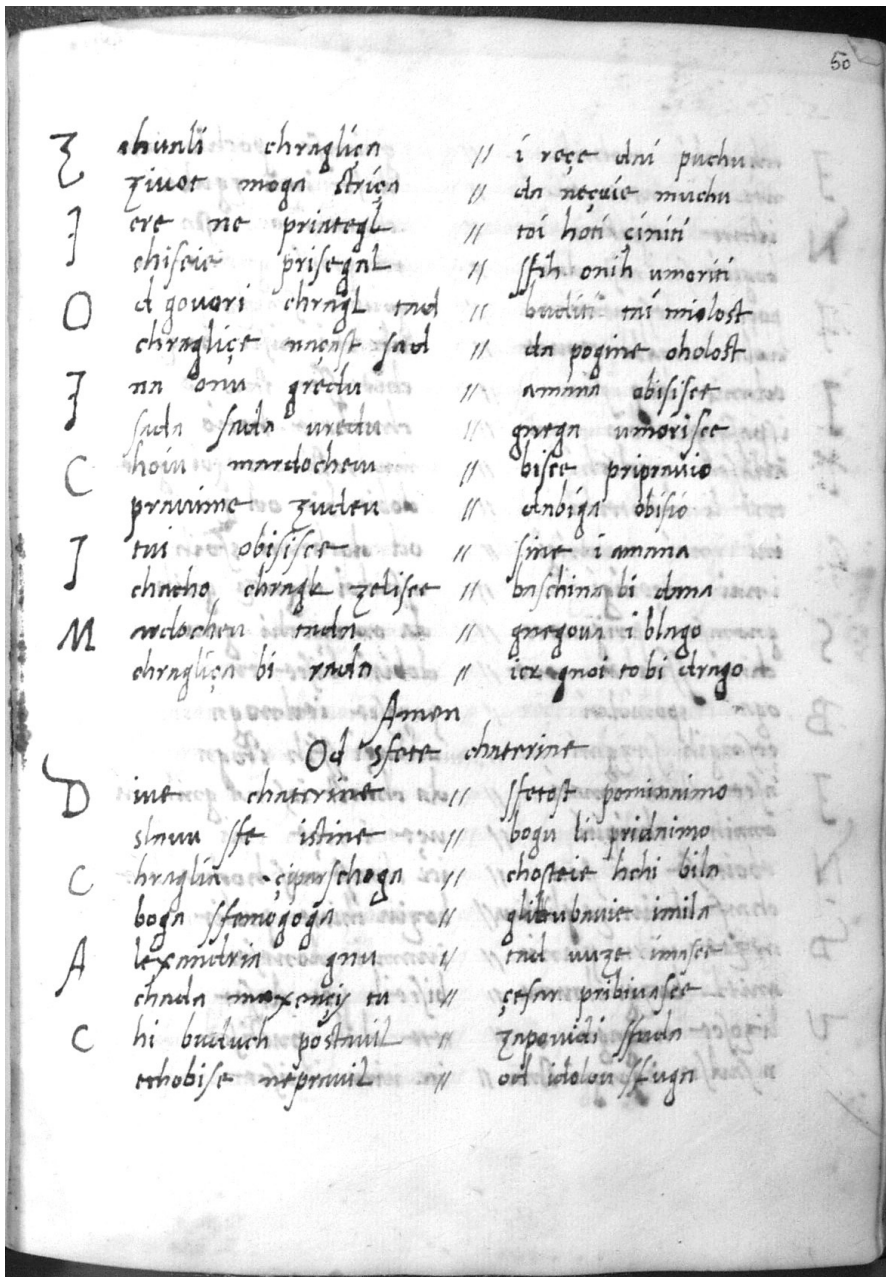 50
Z chuali chragliça // i reçe dai puchu
ziuot moga striça // da neçuie muchu
I ere ne priategl // toi hoti çiniti
chiseie prisegal // ssih onih umoriti
O d gouori chragl tad // buditi tai miolost
chragliçe naçast sad // da pogine oholost
I na onu gredu // amana obisisce
sada sada uredu // gnega umorisce
C hoiu mardocheu // bisce pripravio
prauime zudeu // dabiga obisio
I tui obisisce // sine i amana
chacho chragl zelisce // baschina bi dana
M ardocheu tada // gnegoua i blago
chragliça bi rada // ier gnoi to bi drago
Amen
Od sfete chaterine
D iue chaterine // sfetost pominaimo
slauu sfe istine // bogu li pridaimo
C hraglia çiparschoga // chosteie hchi bila
boga ssemogoga // gliubauie imila
A lexandria gnu // tad uuze imasce
chada maxençij tu // çesar pribiuasce
C hi buduch postauil // zapouidi sfuda
tchobise nepravil // od idolou sfuga